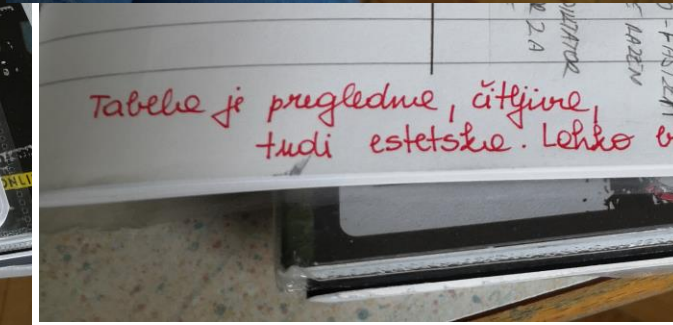 Tabela je pregledna, čitljiva,
tudi estetska. Lahko b
R 2A